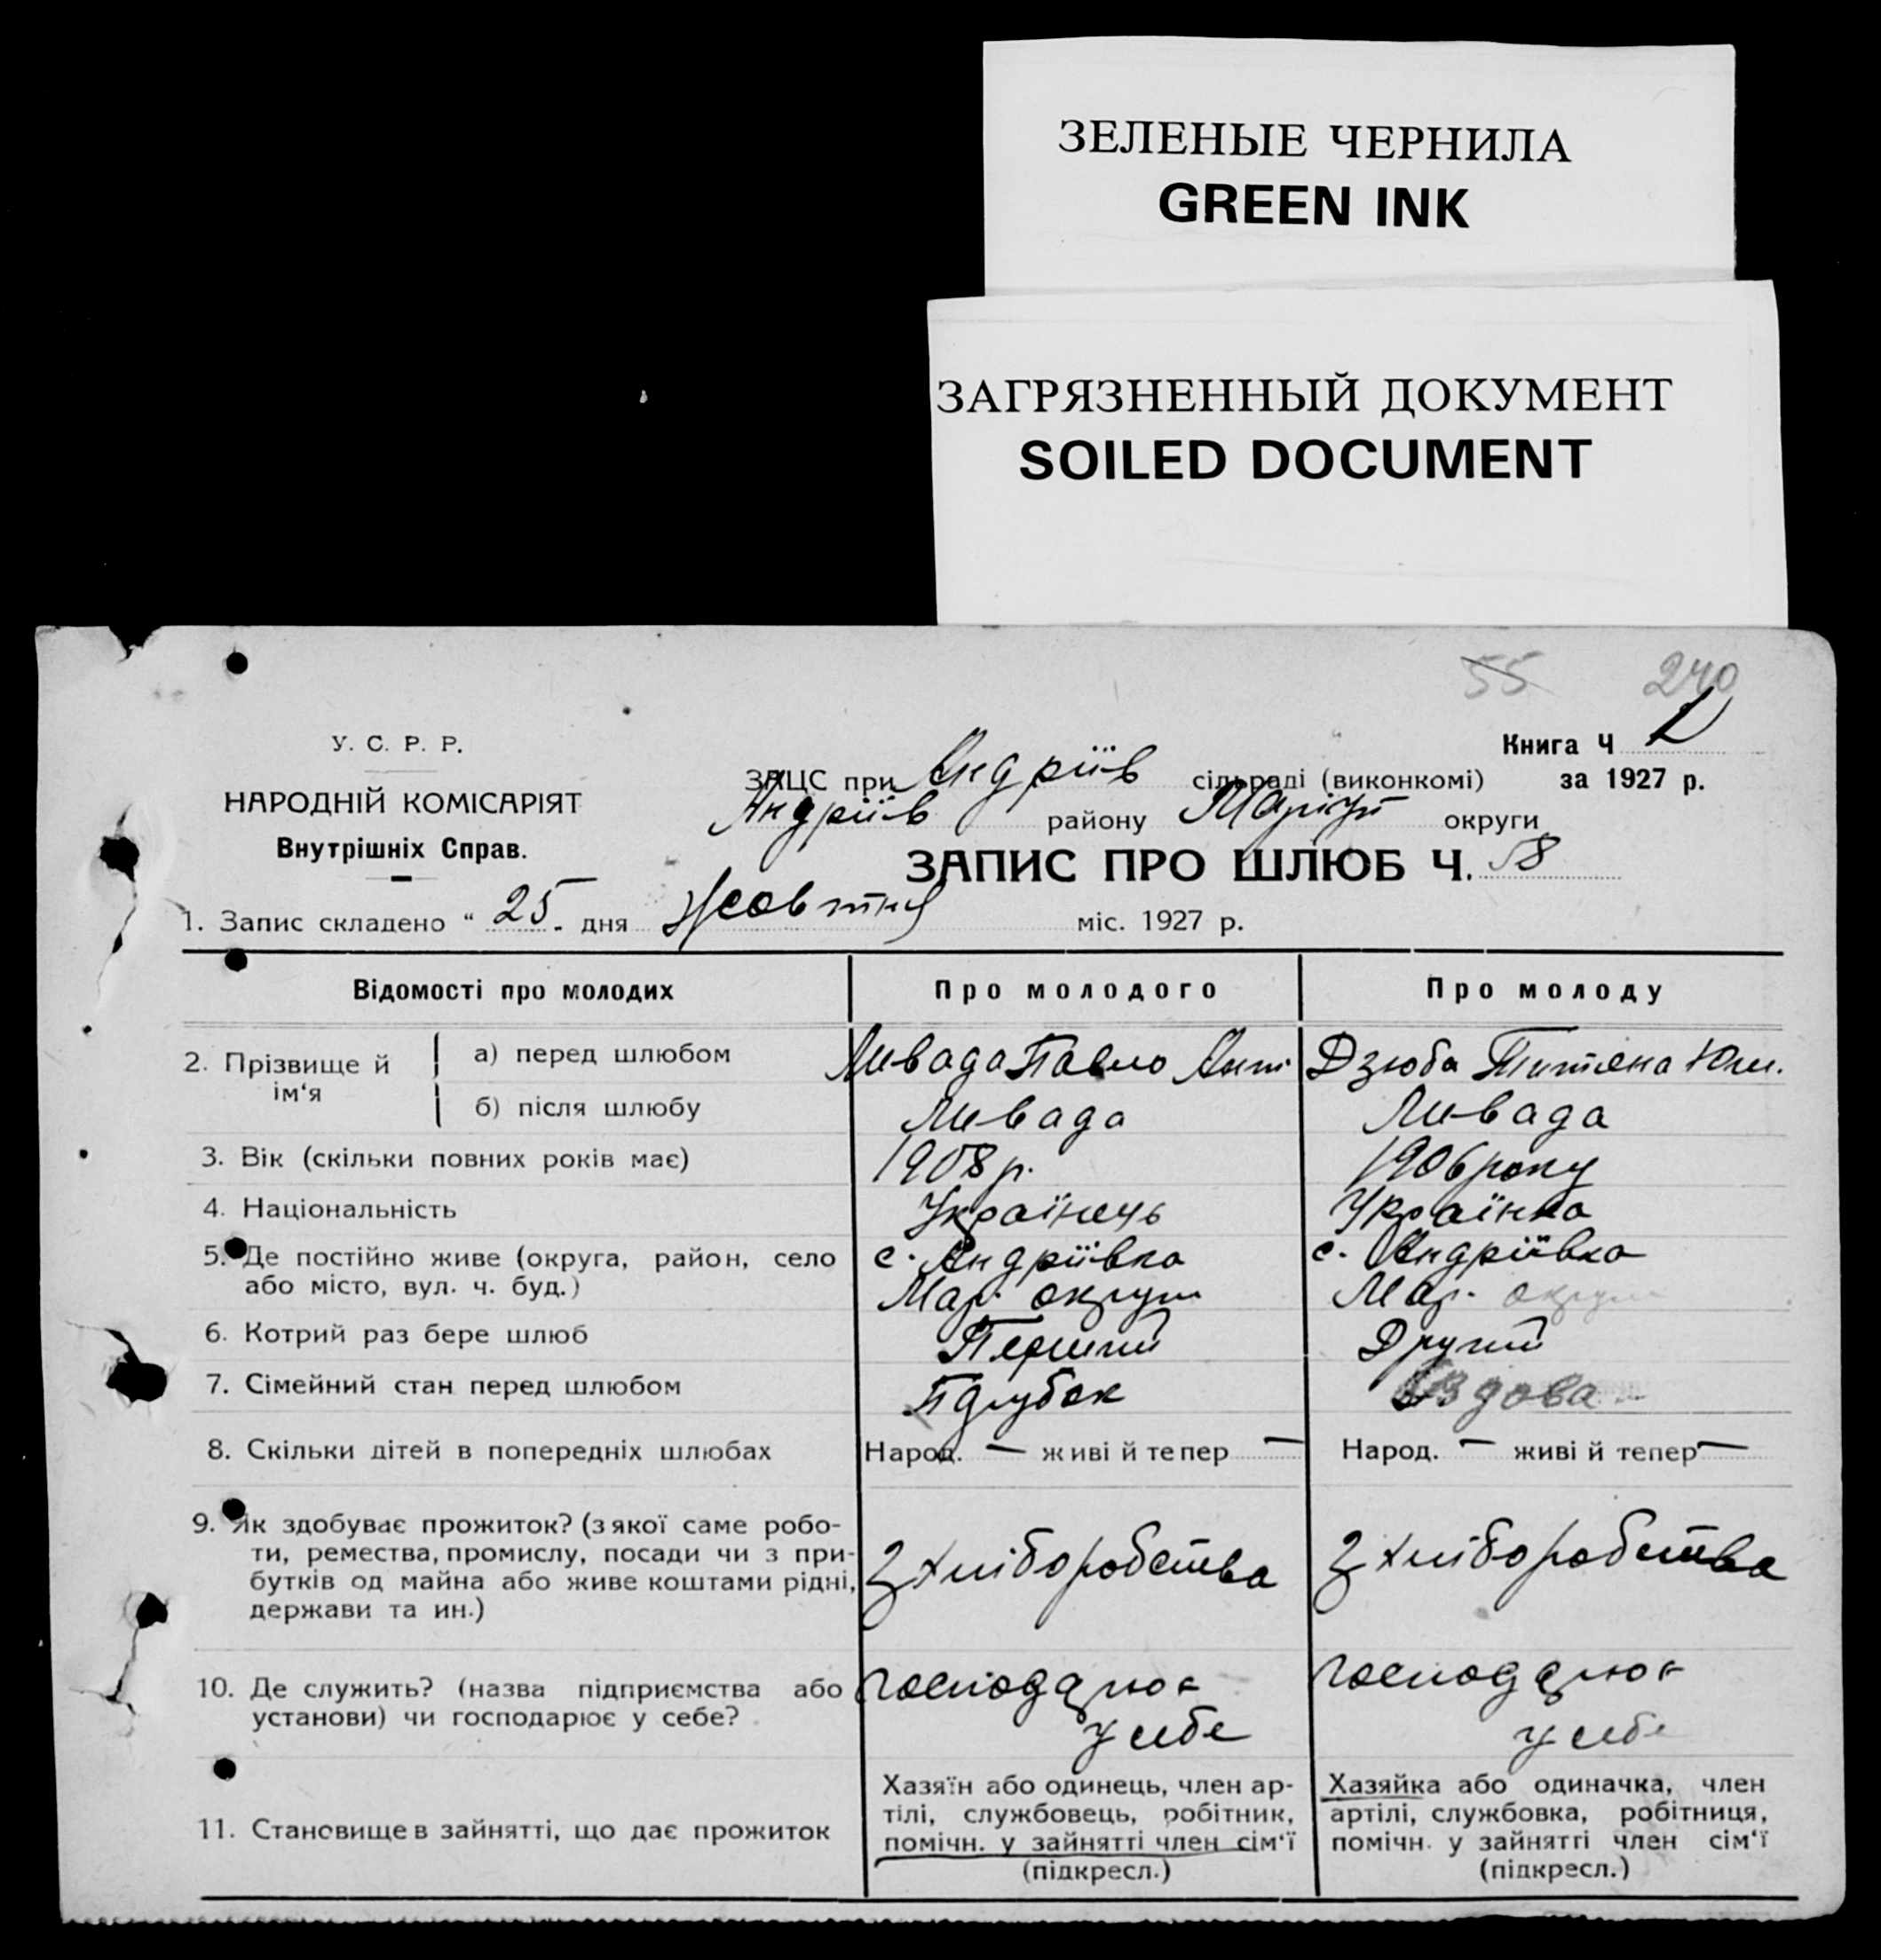 ЗЕЛЕНЫЕ ЧЕРНИЛА
GREEN INK
ЗАГРЯЗНЕННЫЙ ДОКУМЕНТ
SOILED DOCUMENT
55 240
У. С. Р. Р.
НАРОДНІЙ КОМІСАРІЯТ
Внутрішніх Справ.
Книга Ч
ЗАЦС при Андріїв сільраді (виконкомі) за 1927 р.
Андріїв району Маріуп округи
ЗАПИС ПРО ШЛЮБ Ч. 58
1. Запис складено “ 25 „ дня Жовтня міс. 1927 р.
Відомості про молодих Про молодого Про молоду
2. Прізвище й ім‘я а) перед шлюбом Ливада Павло Ант Дзюба Титяна Юхи.
б) після шлюбу Ливада Ливада
3. Вік (скільки повних років має) 1908 р. 1906 року
4. Національність Українець Українка
5. Де постійно живе (округа, район, село с. Андріївка с. Андріївка
або місто, вул. ч. буд.) Мар. округи Мар. округи
6. Котрий раз бере шлюб Перший Другий
7. Сімейний стан перед шлюбом Парубок Вдова
8. Скільки дітей в попередніх шлюбах Народ. — живі й тепер — Народ. — живі й тепер —
9. Як здобуває прожиток? (з якої саме робо-
ти, ремества, промислу, посади чи з при-
бутків од майна або живе коштами рідні,
держави та ин.)
З хліборобства З хліборобства
10. Де служить? (назва підприємства або
установи) чи господарює у себе?
господарює
у себе
господарює
у себе
11. Становище в зайнятті, що дає прожиток
Хазяїн або одинець, член ар-
тілі, службовець, робітник,
помічн. у зайнятті член сім‘ї
(підкресл.)
Хазяйка або одиначка, член
артілі, службовка, робітниця,
помічн. у зайнятті член сім‘ї
(підкресл.)